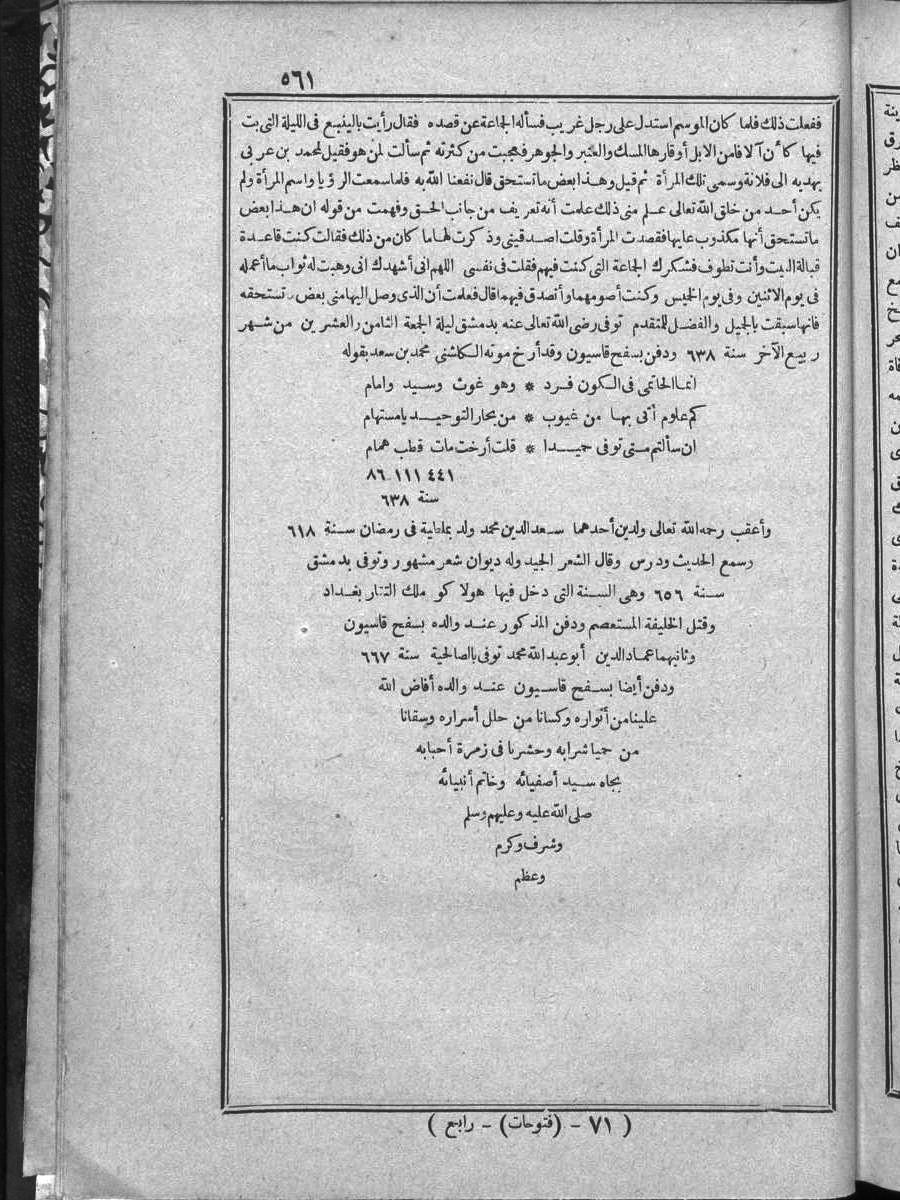 ٥٦١
ففعلت ذلك فلما كان الموسم استدل على رجل غريب فسأله الجماعة عن قصده فقال رأيت بالينبع فى الليلة التى بت
فيها كأن آلافا من الابل أوقارها المسك والعنبر والجوهر فعجبت من كثرته ثم سألت لمن هو فقيل لمحمد بن عربى
يهديه الى فلانة وسمى تلك المرأة ثم قيل وهذا بعض ما تستحق قال نفعنا الله به فلما سمعت الرؤيا واسم المرأة ولم
يكن أحد من خلق الله تعالى علم منى ذلك علمت أنه تعريف من جانب الحق وفهمت من قوله ان هذا بعض
ما تستحق أنها مكذوب عليها فقصدت المرأة وقلت اصدقينى وذكرت لها ما كان من ذلك فقالت كنت قاعدة
قبالة البيت وأنت تطوف فشكرك الجماعة التى كنت فيهم فقلت فى نفسى اللهم انى أشهدك انى وهبت له ثواب ما أعمله
فى يوم الاثنين وفى يوم الخميس وكنت أصومهما وأتصدق فيهما قال فعلمت أن الذى وصل اليها منى بعض ما تستحقه
فانها سبقت بالجميل والفضل للمتقدم توفى رضى الله تعالى عنه بدمشق ليلة الجمعة الثامن والعشرين من شهر
ربيع الآخر سنة ٦٣٨ ودفن بسفح قاسيون وقد أرخ موته الكاشنى محمد بن سعد بقوله
انما الحاتمى فى الكون فرد * وهو غوث وسيد وامام
كم علوم أتى بها من غيوب * من بحار التوحيد يا مستهام
ان سألتم متى توفى حميدا * قلت أرخت مات قطب همام
٤٤١ ١١١ ٨٦
سنة ٦٣٨
وأعقب رحمه الله تعالى ولدين أحدهما سعد الدين محمد ولد بملطية فى رمضان سنة ٦١٨
وسمع الحديث ودرس وقال الشعر الجيد وله ديوان شعر مشهور وتوفى بدمشق
سنة ٦٥٦ وهى السنة التى دخل فيها هولاكو ملك التتار بغداد
وقتل الخليفة المستعصم ودفن المذكور عند والده بسفح قاسيون
وثانيهما عماد الدين أبو عبد الله محمد توفى بالصالحية سنة ٦٦٧
ودفن أيضا بسفح قاسيون عند والده أفاض الله
علينا من أنواره وكسانا من حلل أسراره وسقانا
من حميا شرابه وحشرنا فى زمرة أحبابه
بجاه سيد أصفيائه وخاتم أنبيائه
صلى الله عليه وعليهم وسلم
وشرف وكرم
وعظم
( ٧١ - (فتوحات) - رابع )